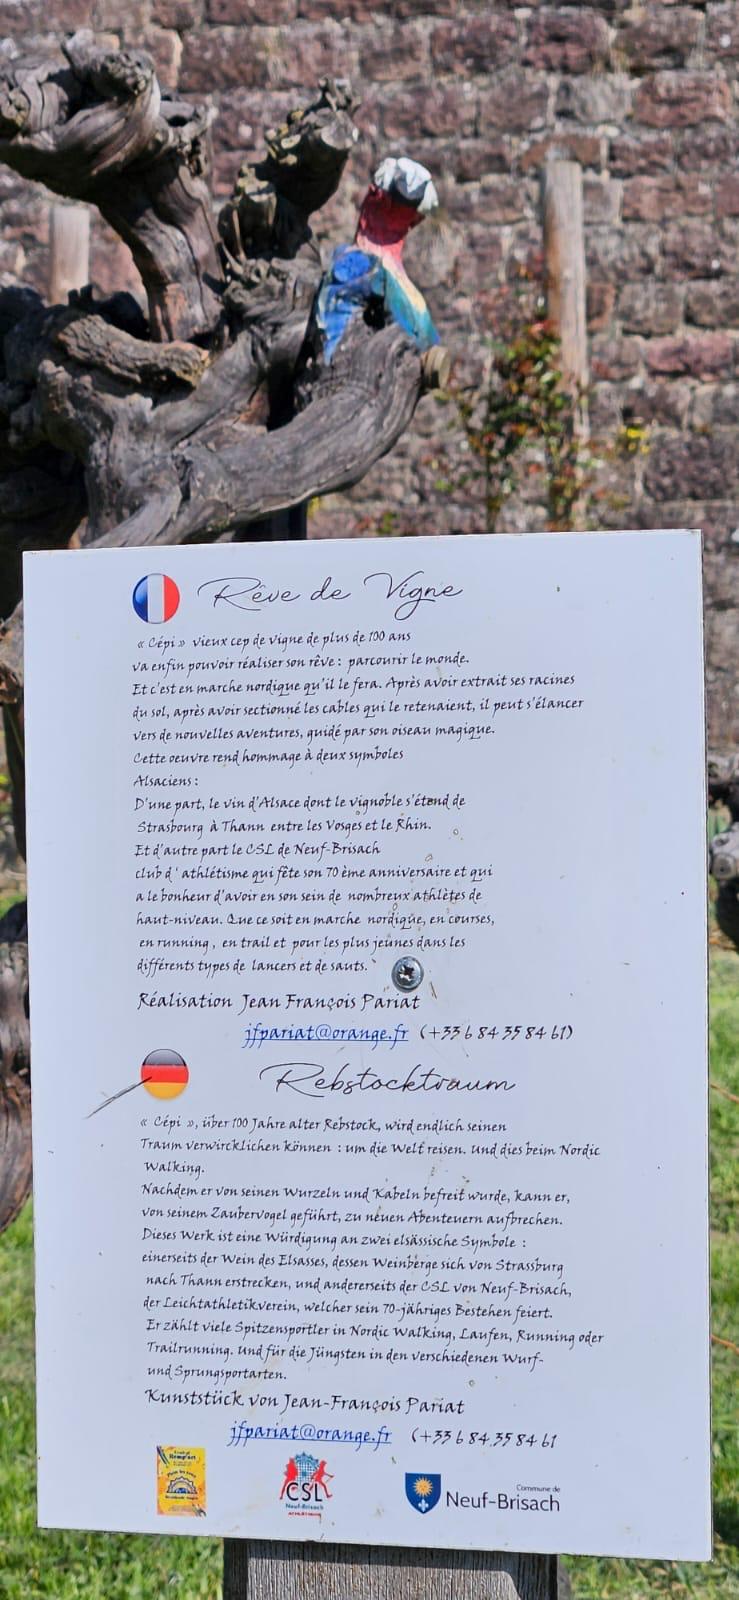 Rêve de Vigne
« Cépi » vieux cep de vigne de plus de 100 ans
va enfin pouvoir réaliser son rêve : parcourir le monde.
Et c'est en marche nordique qu'il le fera. Après avoir extrait ses racines
du sol, après avoir sectionné les cables qui le retenaient, il peut s'élancer
vers de nouvelles aventures, guidé par son oiseau magique.
Cette oeuvre rend hommage à deux symboles
Alsaciens :
D'une part, le vin d'Alsace dont le vignoble s'étend de
Strasbourg à Thann entre les Vosges et le Rhin.
Et d'autre part le CSL de Neuf-Brisach
club d ' athlétisme qui fête son 70 ème anniversaire et qui
a le bonheur d'avoir en son sein de nombreux athlètes de
haut-niveau. Que ce soit en marche nordique, en courses,
en running , en trail et pour les plus jeunes dans les
différents types de lancers et de sauts.
Réalisation Jean François Pariat
jfpariat@orange.fr (+33 6 84 35 84 61)
Rebstocktraum
« Cépi », über 100 Jahre alter Rebstock, wird endlich seinen
Traum verwircklichen können : um die Welt reisen. Und dies beim Nordic
Walking.
Nachdem er von seinen Wurzeln und Kabeln befreit wurde, kann er,
von seinem Zaubervogel geführt, zu neuen Abenteuern aufbrechen.
Dieses Werk ist eine Würdigung an zwei elsässische Symbole :
einerseits der Wein des Elsasses, dessen Weinberge sich von Strassburg
nach Thann erstrecken, und andererseits der CSL von Neuf-Brisach,
der Leichtathletikverein, welcher sein 70-jähriges Bestehen feiert.
Er zählt viele Spitzensportler in Nordic Walking, Laufen, Running oder
Trailrunning. Und für die Jüngsten in den verschiedenen Wurf-
und Sprungsportarten.
Kunststück von Jean-François Pariat
jfpariat@orange.fr (+33 6 84 35 84 61
CSL
Neuf-Brisach
ATHLÉTISME
Commune de
Neuf-Brisach